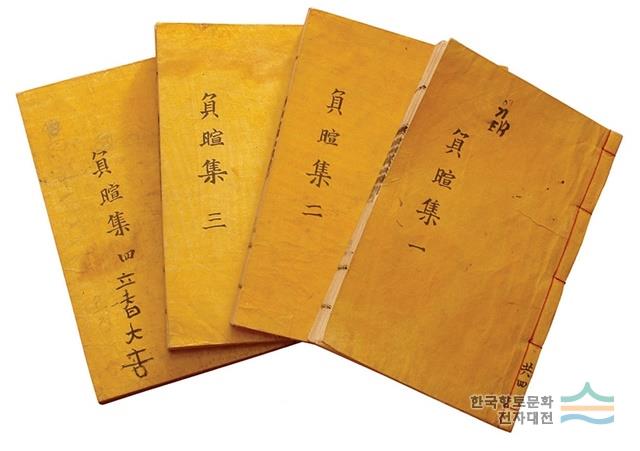 負暄集 四
負暄集 三
負暄集 二
負暄集 一
共四
한국향토문화
전자대전